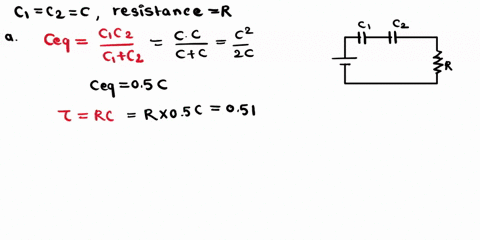 C₁ = C₂ = C, resistance = R
a. Ceq = C₁C₂ / C₁+C₂ = C.C / C+C = C² / 2C
Ceq = 0.5 C
τ = RC = R × 0.5 C = 0.5
C₁ C₂
R